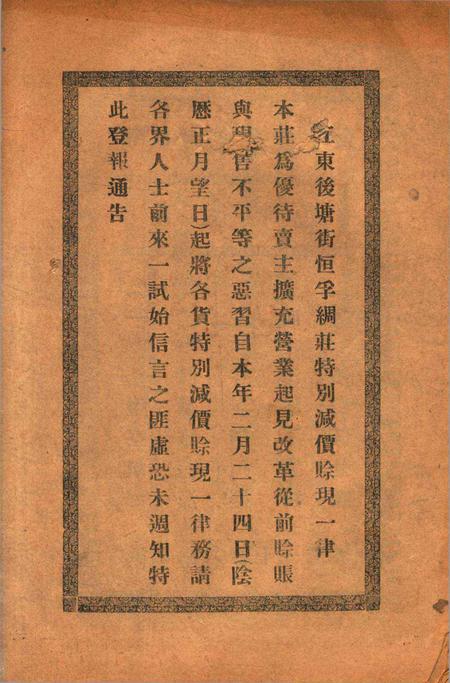 江東後塘街恒孚綢莊特別減價賒現一律
本莊爲優待賣主擴充營業起見改革從前賒賬
與現售不平等之惡習自本年二月二十四日(陰
歷正月望日)起將各貨特別減價賒現一律務請
各界人士前來一試始信言之匪虛恐未週知特
此登報通告